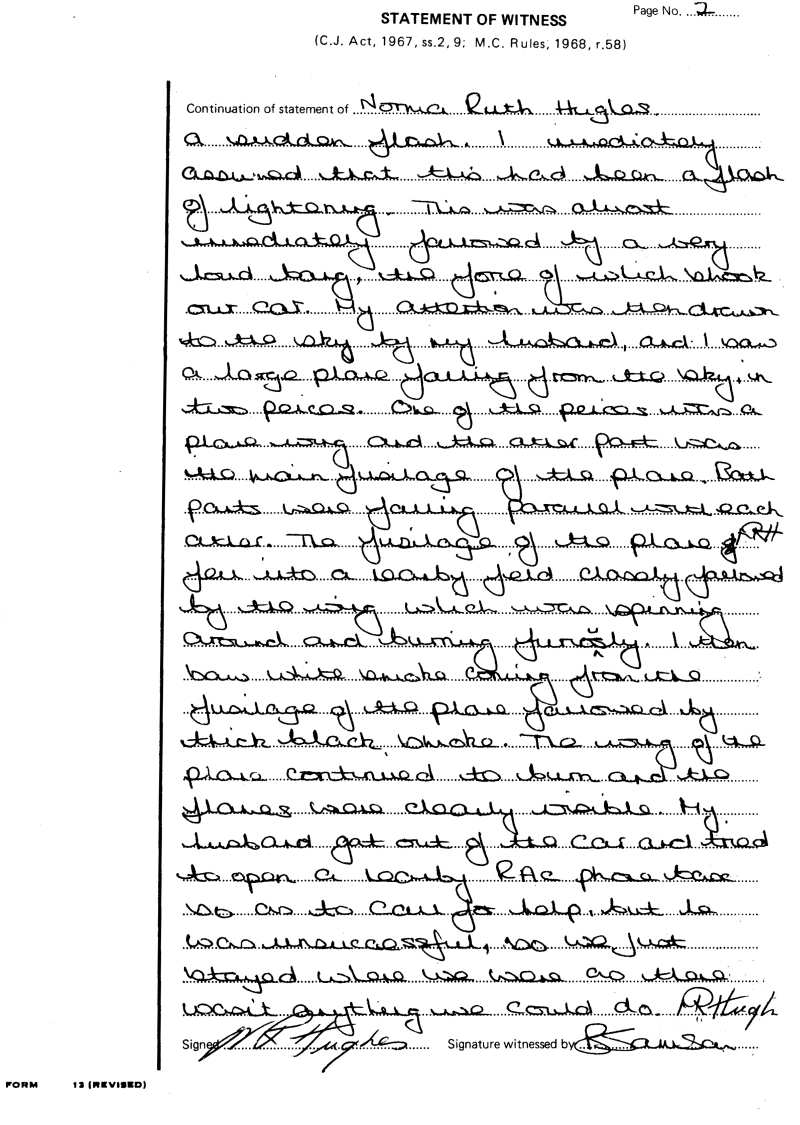 Page No. 2
STATEMENT OF WITNESS
(C.J. Act, 1967, ss.2, 9; M.C. Rules, 1968, r.58)
Continuation of statement of Norma Ruth Hughes.
a sudden flash. I imediately
assumed that this had been a flash
of lightening. This was almost
immediately followed by a very
loud bang, the force of which shook
our car. My attention was then drawn
to the sky by my husband, and I saw
a large plane falling from the sky, in
two peices. One of the peices was a
plane wing and the other part was
the main fusilage of the plane. Both
parts were falling parallel with each
other. The fusilage of the plane
fell into a nearby field closely followed
by the wing which was spinning
around and burning furiosly. I then
saw white smoke coming from the
fusilage of the plane followed by
thick black smoke. The wing of the
plane continued to burn and the
flames were clearly visible. My
husband got out of the car and tried
to open a nearby RAC phone box
so as to call for help, but he
was unsuccessful, so we just
stayed where we were as there
wasn't anything we could do. NRHugh
Signed NR Hughes Signature witnessed by
FORM 13 (REVISED)